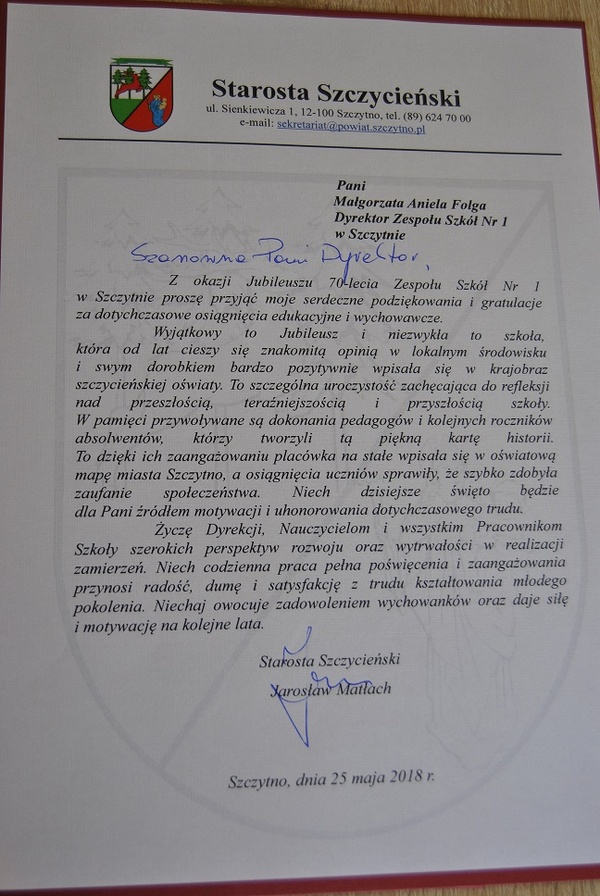 Starosta Szczycieński
ul. Sienkiewicza 1, 12-100 Szczytno, tel. (89) 624 70 00
e-mail: sekretariat@powiat.szczytno.pl
Pani
Małgorzata Aniela Folga
Dyrektor Zespołu Szkół Nr 1
w Szczytnie
Szanowna Pani Dyrektor,
Z okazji Jubileuszu 70-lecia Zespołu Szkół Nr 1
w Szczytnie proszę przyjąć moje serdeczne podziękowania i gratulacje
za dotychczasowe osiągnięcia edukacyjne i wychowawcze.
Wyjątkowy to Jubileusz i niezwykła to szkoła,
która od lat cieszy się znakomitą opinią w lokalnym środowisku
i swym dorobkiem bardzo pozytywnie wpisała się w krajobraz
szczycieńskiej oświaty. To szczególna uroczystość zachęcająca do refleksji
nad przeszłością, teraźniejszością i przyszłością szkoły.
W pamięci przywoływane są dokonania pedagogów i kolejnych roczników
absolwentów, którzy tworzyli tą piękną kartę historii.
To dzięki ich zaangażowaniu placówka na stałe wpisała się w oświatową
mapę miasta Szczytno, a osiągnięcia uczniów sprawiły, że szybko zdobyła
zaufanie społeczeństwa. Niech dzisiejsze święto będzie
dla Pani źródłem motywacji i uhonorowania dotychczasowego trudu.
Życzę Dyrekcji, Nauczycielom i wszystkim Pracownikom
Szkoły szerokich perspektyw rozwoju oraz wytrwałości w realizacji
zamierzeń. Niech codzienna praca pełna poświęcenia i zaangażowania
przynosi radość, dumę i satysfakcję z trudu kształtowania młodego
pokolenia. Niechaj owocuje zadowoleniem wychowanków oraz daje siłę
i motywację na kolejne lata.
Starosta Szczycieński
Jarosław Matłach
Szczytno, dnia 25 maja 2018 r.